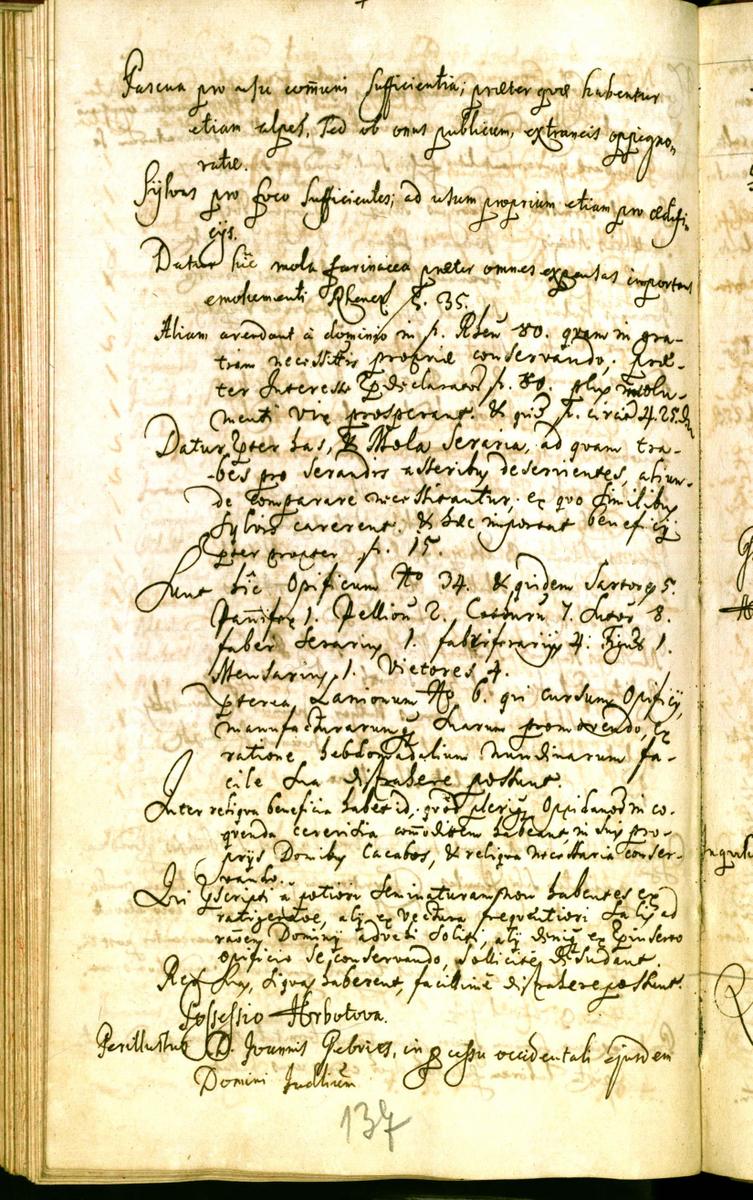 Pascua pro usu com̄uni sufficientia; præter quæ habentur
etiam alpes, sed ob onus publicum, extraneis oppigno-
ratæ.
Sylvas pro foco sufficientes; ad usum proprium etiam pro ædifi-
cijs.
Datur hic mola farinacea præter omnes expensas importans
emolumenti Rhenens. f. 35.
Aliam arendant à domino in f. Rhen 80. quam in gra-
tiam necessitatis propriæ conservando, præ-
ter Interesse declarator f. 80. plus emolu-
menti vix prosperant. & quid f. circit 4. 25. d
Datur præter has, & Mola Seraria, ad quam tra-
bes pro serandis asseribus deservientes, aliun-
de comparare necessitantur; ex quo similibus
sylvis carerent. & hæc important beneficij
præter propter f. 15.
Sunt hic Opificum No 34. & quidem Sartores 5.
Panifex 1. Pellion 2. Cothurn 7. Sutor 8.
faber Serarius 1. fabri ferrarij 4. Figulus 1.
Mensarius 1. Vietores 4.
Præterea Lanionum No 6. qui cursum Opificij,
manufacturarumque suarum promovendo, ex
ratione hebdomadalium nundinarum fa-
cile sua distrahere possunt.
Inter reliqua beneficia habet id, quod plerique Oppidanorum in co-
quenda cerevisia com̄oditatem habeant, in suis pro-
prijs Domibus Cacabos, & reliqua necessaria conser-
vando.
Qui præscripti à potiori seminaturam non habentes ex
alij ex vectura frequentiori Salis ad
Dominij advehi soliti, alij denique ex præinserto
opificio se conservando, sollicite desudant.
Res suas, si quas haberent, facillime distrahere possunt.
Possessio Hrbotova.
Perillustris D. Joannis Gebries, in processu occidentali ejusdem
Domini Judlium
137